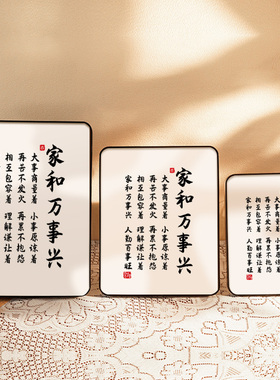 家和万事兴
大事商量着 小事原谅着
再苦不发火 再累不抱怨
相互包容着 理解谦让着
家和万事兴
大事商量着 小事原谅着
再苦不发火 再累不抱怨
相互包容着 理解谦让着
家和万事兴 人勤百事旺
大事商量着 小事原谅着
再苦不发火 再累不抱怨
相互包容着 理解谦让着